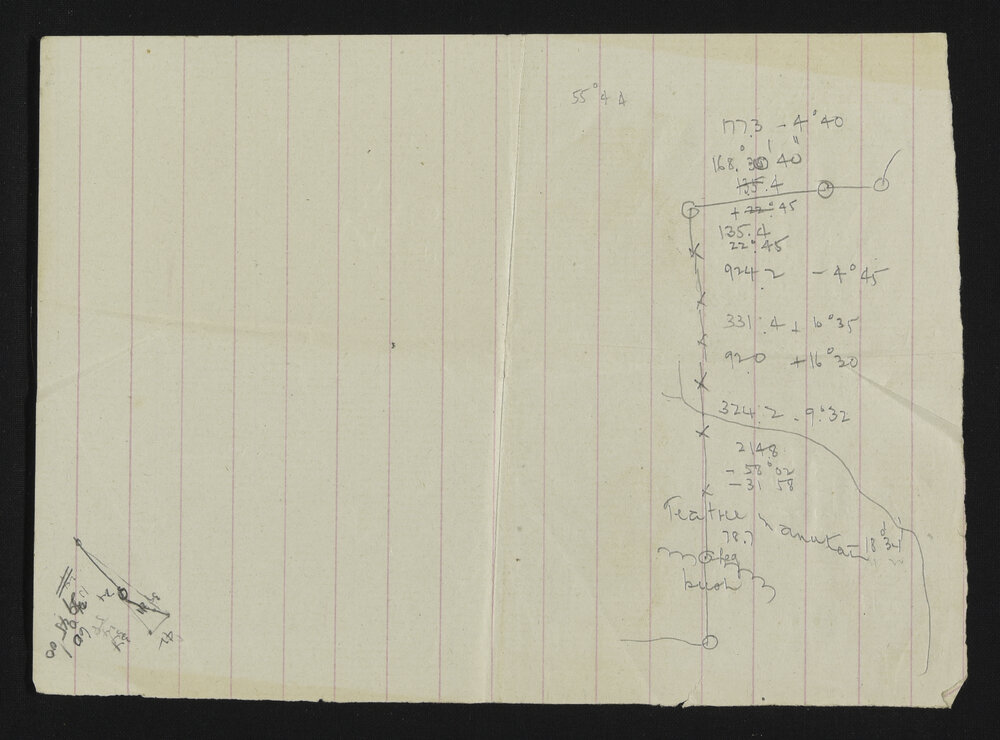 55°44
177.3 - 4°40
168.30 40
135.4
+ 22°45
135.4
22°45
924.2 - 4°45
331.4 + 6°35
920 +16°30
324.2 - 9°32
2148
- 58°02
- 31 58
Teatree manukau - 18°34
78.7
peg
bush